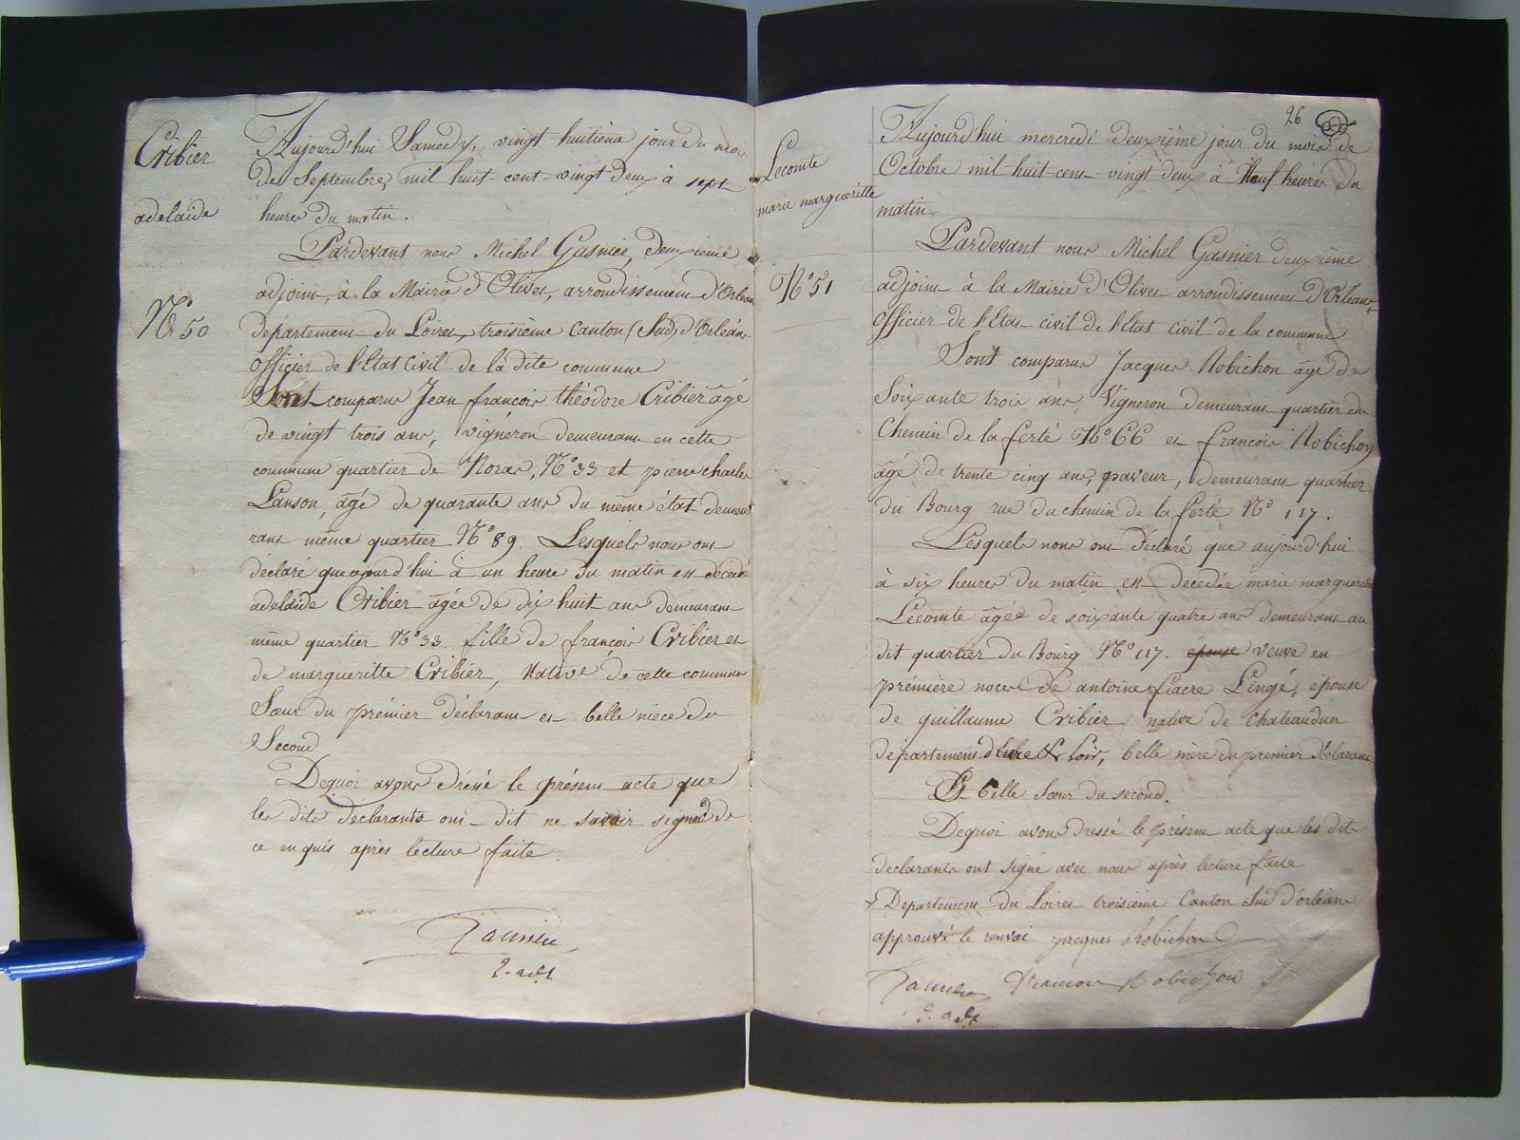 Cribier
adelaide
N.° 50
Aujourd'hui Samedy, vingt-huitieme jour du mois
de Septembre, mil huit-cent-vingt deux à sept
heures du matin.
Pardevant nous Michel Gasnier, deuxieme
adjoint, à la Mairie d'Olivet, arrondissement d'Orléans
département du Loiret, troisième Canton (Sud) d'Orléans
officier de l'Etat Civil de la dite commune
Sont comparus Jean françois théodore Cribier âgé
de vingt trois ans, vigneron demeurant en cette
commune quartier de Noras, N.° 33 et pierre charles
Lanson, âgé de quarante ans du même état demeu
rant même quartier N.° 89. Lesquels nous ont
déclaré que aujourd'hui à un heure du matin est décédé
adelaïde Cribier âgée de dix huit ans demeurant
même quartier N.° 33 fille de françois Cribier et
de margueritte Cribier, Native de cette commune
Sœur du premier déclarant et belle niece du
Second
Dequoi avons dressé le présent acte que
les dits déclarants ont dit ne savoir signer de
ce enquis après lecture faite.
Gasnier
2. adjt
26
Lecomte
marie margueritte
N.° 51
Aujourd'hui mercredi deuxième jour du mois de
Octobre mil huit-cent-vingt deux à Neuf heures du
matin.
Pardevant nous Michel Gasnier deuxième
adjoint à la Mairie d'Olivet arrondissement d'Orléans +
officier de l'Etat-civil de l'Etat civil de la commune
Sont comparus Jacques Robichon âgé de
Soixante trois ans, Vigneron demeurant quartier du
Chemin de la ferté N.° 66 et françois Robichon
âgé de trente cinq ans, paveur, demeurant quartier
du Bourg rue du chemin de la ferté N.° 117.
Lesquels nous ont déclaré que aujourd'hui
à six heures du matin est décédée marie margueritte
Lecomte âgée de soixante quatre ans demeurant au
dit quartier du Bourg N.° 117. épouse veuve en
première noces de antoine fiacre Lingé, épouse
de guillaume Cribier native de chateaudun
département d'Eure & Loir, belle mère du premier déclarant
Et belle Sœur du second.
Dequoi avons dressé le présent acte que les dits
declarants ont signé avec nous après lecture faite
+ Departement du Loiret troisième Canton Sud d'orléans
approuvé le renvoi jacques Robichon
Gasnier francois Robichon
2. adjt